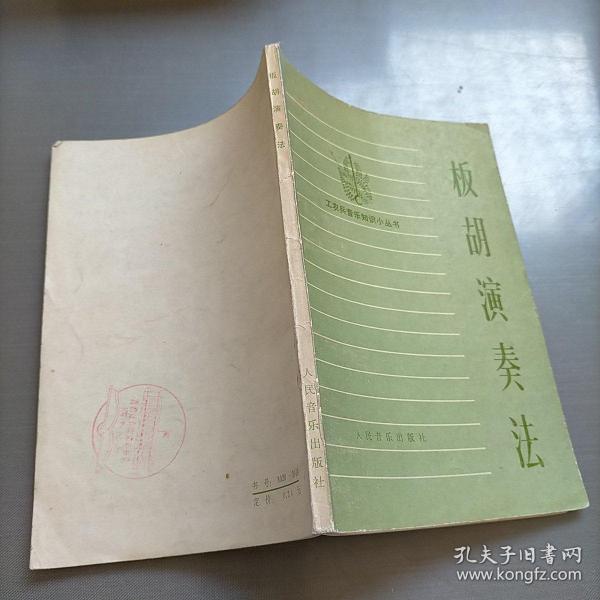 工农兵音乐知识小丛书
板胡演奏法
人民音乐出版社
板胡演奏法
人民音乐出版社
书号:
定价:
孔夫子旧书网
www.kongfz.com